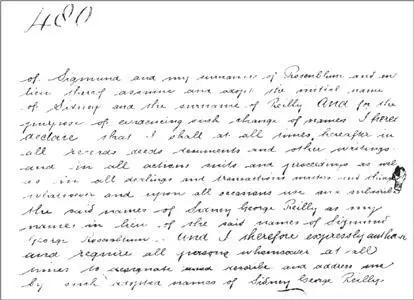 480
of Sigmund and my surname of Rosenblum and in
lieu thereof assume and adopt the initial name
of Sidney and the surname of Reilly And for the
purpose of evidencing such change of names I hereby
declare that I shall at all times hereafter in
all records deeds documents and other writings
and in all actions suits and proceedings as well
as in all dealings and transactions matters and things
whatsoever and upon all occasions use and subscribe
the said names of Sidney George Reilly as my
names in lieu of the said names of Sigmund
George Rosenblum. And I therefore expressly authorise
and require all persons whomsoever at all
times to designate and describe and address me
by such adopted names of Sidney George Reilly.